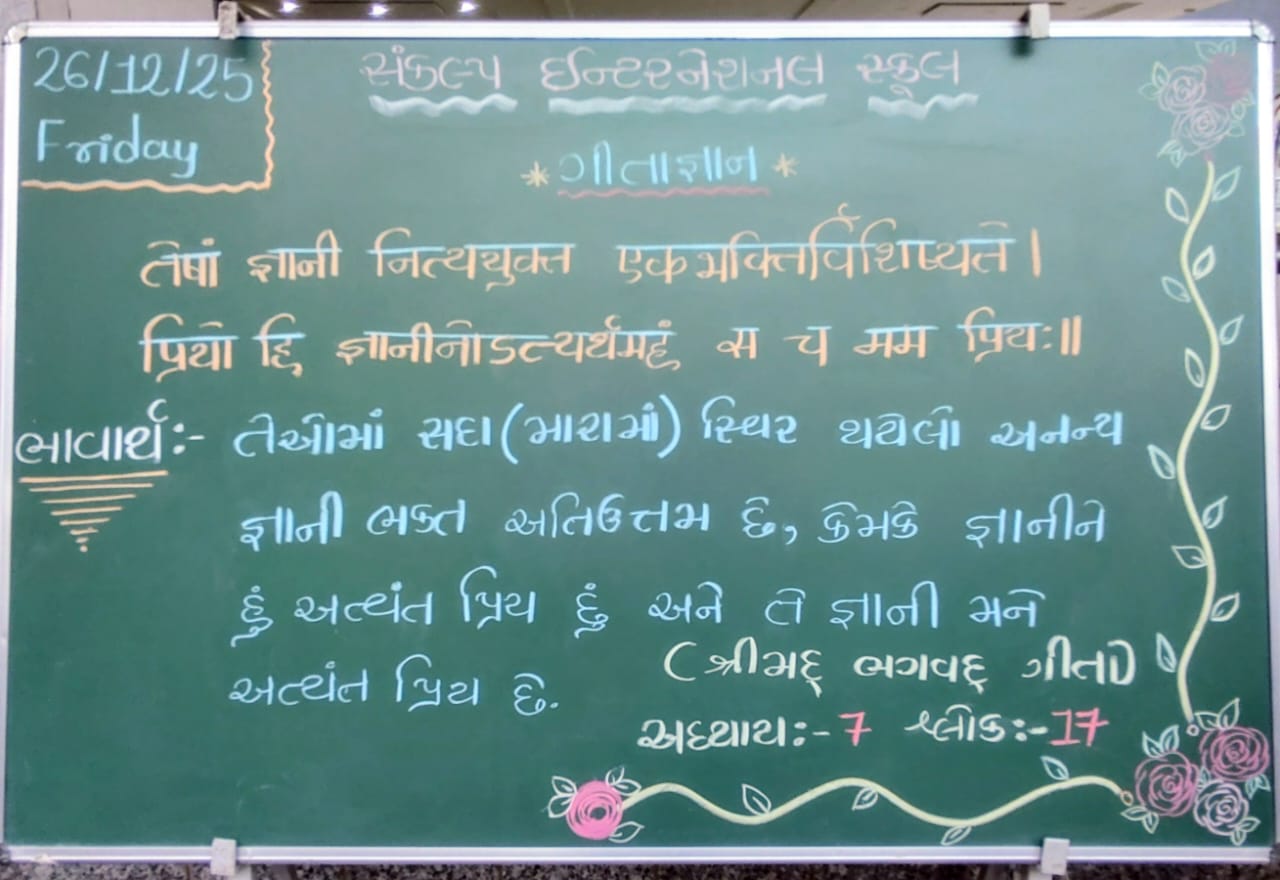 26/12/25
Friday
સંકલ્પ ઈન્ટરનેશનલ સ્કૂલ
* ગીતાજ્ઞાન *
तेषां ज्ञानी नित्ययुक्त एकभक्तिर्विशिष्यते।
प्रियो हि ज्ञानीनोऽत्यर्थमहं स च मम प्रियः॥
ભાવાર્થ:- તેઓમાં સદા(મારામાં) સ્થિર થયેલો અનન્ય
જ્ઞાની ભક્ત અતિઉત્તમ છે, કેમકે જ્ઞાનીને
હું અત્યંત પ્રિય છું અને તે જ્ઞાની મને
અત્યંત પ્રિય છે.
(શ્રીમદ્ ભગવદ્ ગીતા)
અધ્યાય:- 7 શ્લોક:- 17